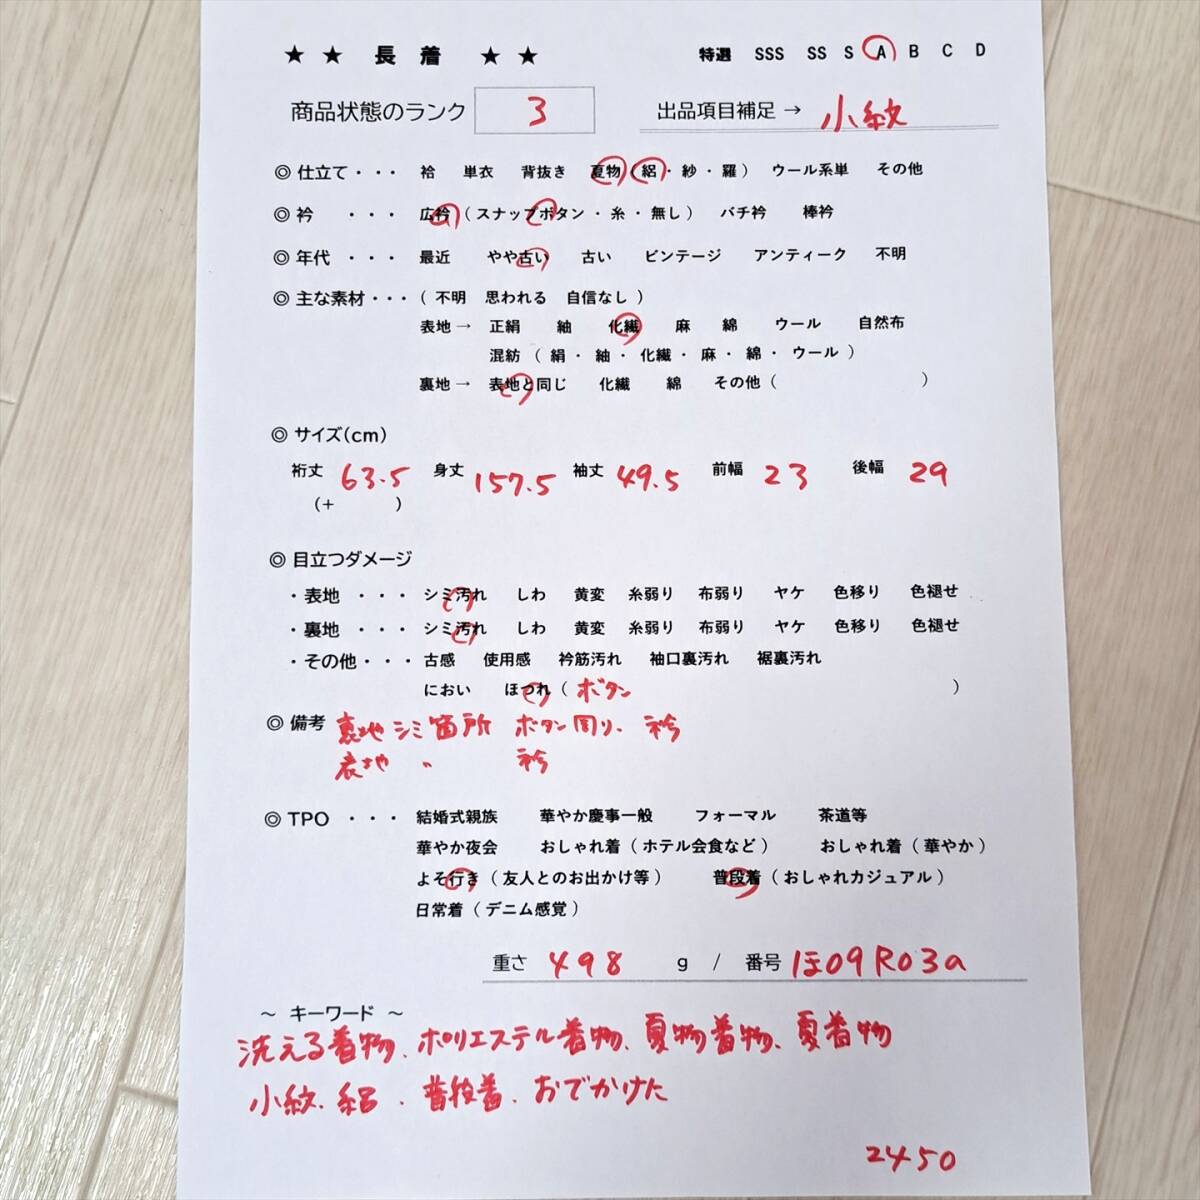 ★ ★ 長 着 ★ ★ 特選 SSS SS S A B C D
商品状態のランク 3 出品項目補足 → 小紋
◎ 仕立て ・・・ 袷 単衣 背抜き 夏物 ( 絽 ・ 紗 ・ 羅 ) ウール系単 その他
◎ 衿 ・・・ 広衿 ( スナップボタン ・ 糸 ・ 無し ) バチ衿 棒衿
◎ 年代 ・・・ 最近 やや古い 古い ビンテージ アンティーク 不明
◎ 主な素材 ・・・ ( 不明 思われる 自信なし )
表地 → 正絹 紬 化繊 麻 綿 ウール 自然布
混紡 ( 絹 ・ 紬 ・ 化繊 ・ 麻 ・ 綿 ・ ウール )
裏地 → 表地と同じ 化繊 綿 その他 ( )
◎ サイズ(cm)
裄丈 63.5 身丈 157.5 袖丈 49.5 前幅 23 後幅 29
(+ )
◎ 目立つダメージ
・表地 ・・・ シミ汚れ しわ 黄変 糸弱り 布弱り ヤケ 色移り 色褪せ
・裏地 ・・・ シミ汚れ しわ 黄変 糸弱り 布弱り ヤケ 色移り 色褪せ
・その他 ・・・ 古感 使用感 衿筋汚れ 袖口裏汚れ 裾裏汚れ
におい ほつれ ( ボタン )
◎ 備考 裏地シミ箇所 ボタン周り、衿
表地 〃 衿
◎ TPO ・・・ 結婚式親族 華やか慶事一般 フォーマル 茶道等
華やか夜会 おしゃれ着 ( ホテル会食など ) おしゃれ着 ( 華やか )
よそ行き ( 友人とのお出かけ等 ) 普段着 ( おしゃれカジュアル )
日常着 ( デニム感覚 )
重さ 498 g / 番号 ほ09R03a
～ キーワード ～
洗える着物、ポリエステル着物、夏物着物、夏着物
小紋、絽、普段着、おでかけた
2450